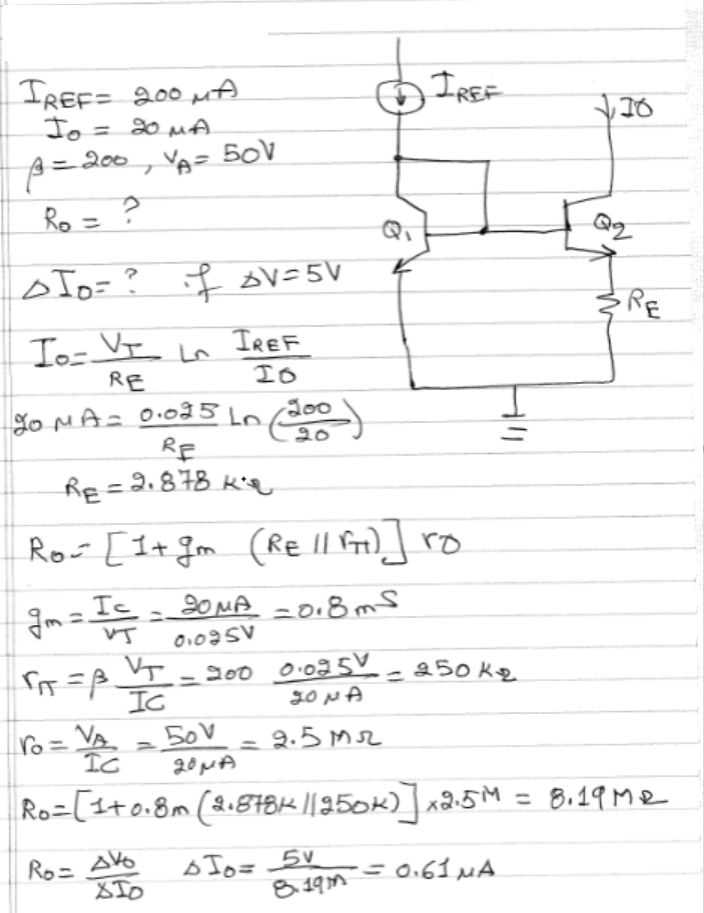 IREF = 200 μA
Io = 20 μA
β = 200 , VA = 50V
Ro = ?
ΔIo = ? if ΔV = 5V
IREF
Io
Q1
Q2
RE
Io = VT/RE Ln IREF/Io
20 μA = 0.025/RE Ln (200/20)
RE = 2.878 KΩ
Ro = [1 + gm (RE || rπ)] ro
gm = Ic/VT = 20μA/0.025V = 0.8 mS
rπ = β VT/IC = 200 0.025V/20μA = 250 KΩ
ro = VA/IC = 50V/20μA = 2.5 MΩ
Ro = [1 + 0.8m (2.878K || 250K)] × 2.5M = 8.19 MΩ
Ro = ΔVo/ΔIo ΔIo = 5V/8.19M = 0.61 μA